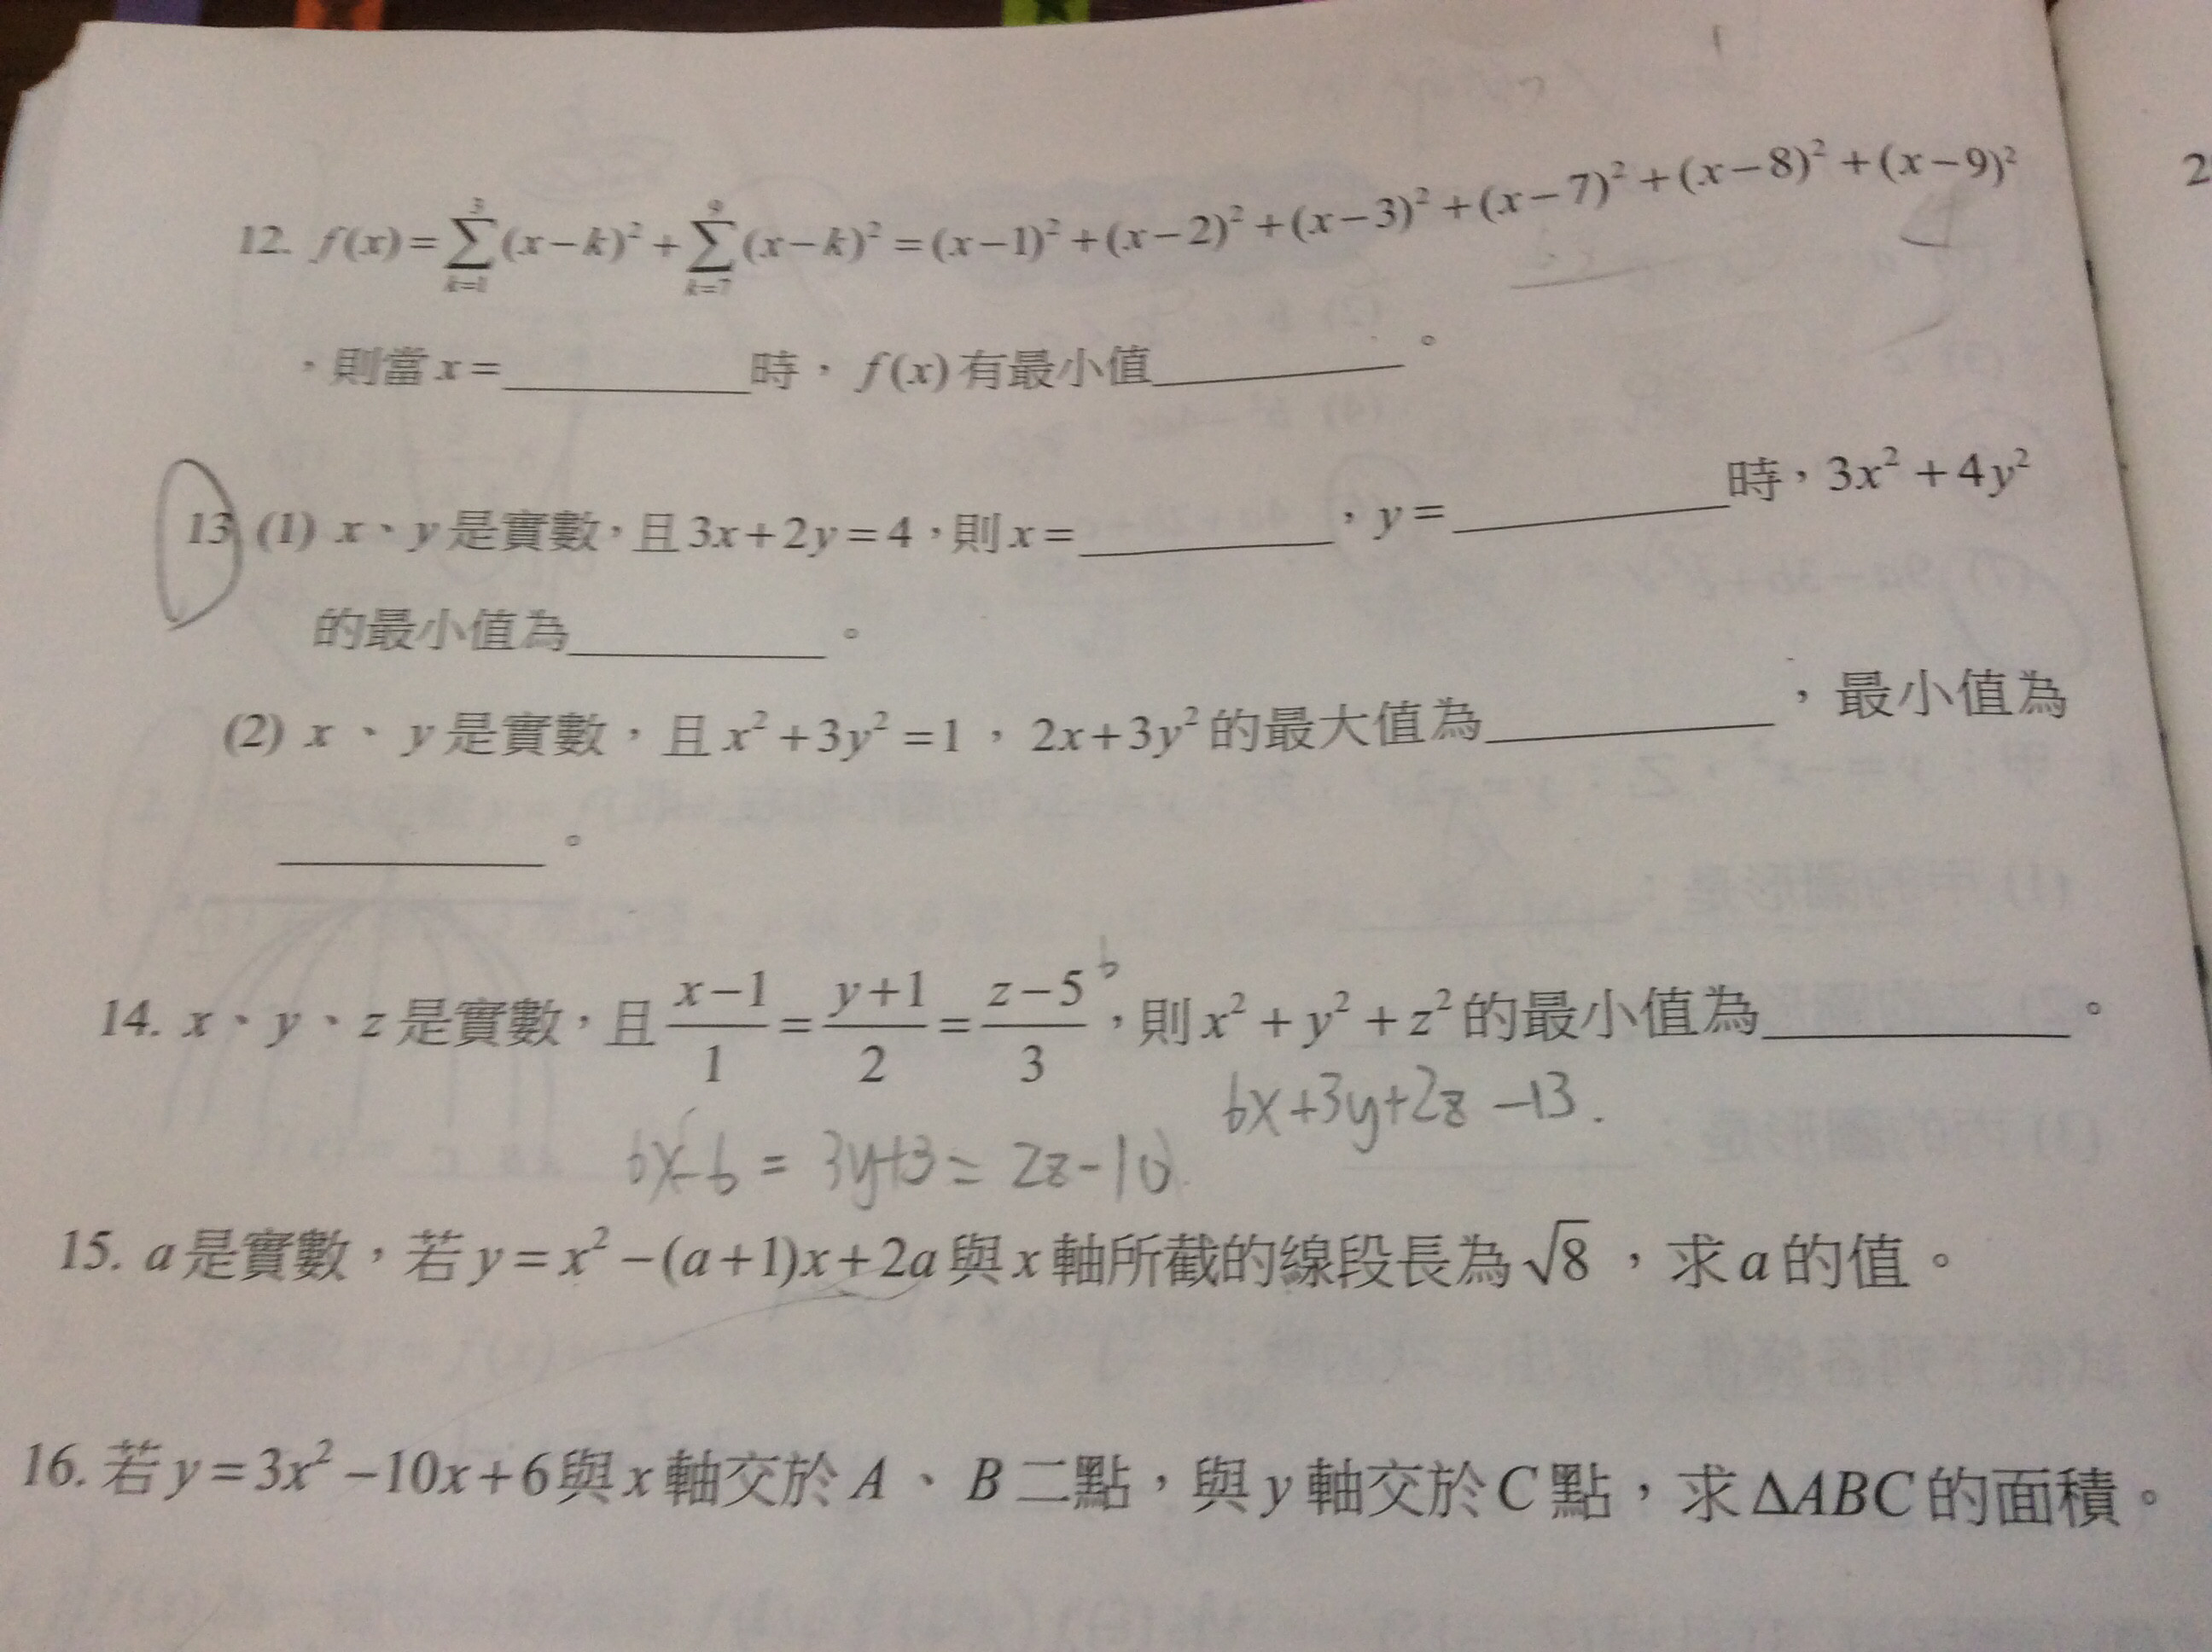 12. f(x)=∑_{k=1}^{3}(x−k)²+∑_{k=7}^{9}(x−k)²=(x−1)²+(x−2)²+(x−3)²+(x−7)²+(x−8)²+(x−9)²
，則當x=__________時，f(x)有最小值__________。
13. (1) x、y是實數，且3x+2y=4，則x=__________，y=__________時，3x²+4y²
的最小值為__________。
(2) x、y是實數，且x²+3y²=1，2x+3y²的最大值為__________，最小值為
__________。
14. x、y、z是實數，且\frac{x−1}{1}=\frac{y+1}{2}=\frac{z−5}{3}，則x²+y²+z²的最小值為__________。
6x+3y+2z−13.
6x−6=3y+3=2z−10
15. a是實數，若y=x²−(a+1)x+2a與x軸所截的線段長為√8，求a的值。
16. 若y=3x²−10x+6與x軸交於A、B二點，與y軸交於C點，求ΔABC的面積。
2